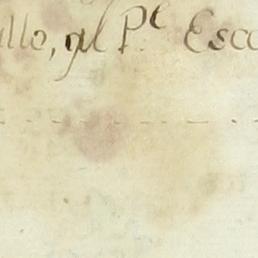 illo, al P.e Esco